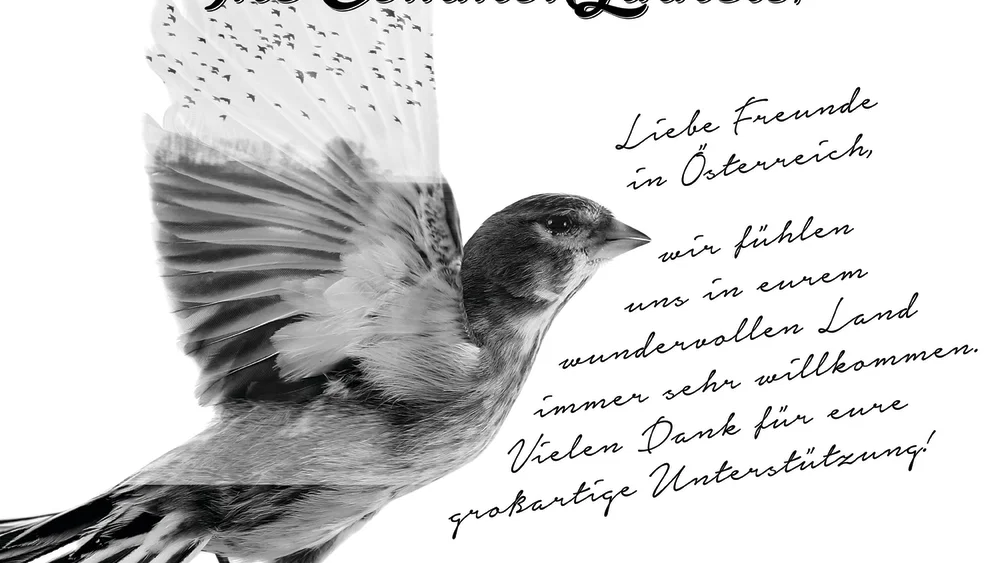 Liebe Freunde
in Österreich,
wir fühlen
uns in eurem
wundervollen Land
immer sehr willkommen.
Vielen Dank für eure
großartige Unterstützung!